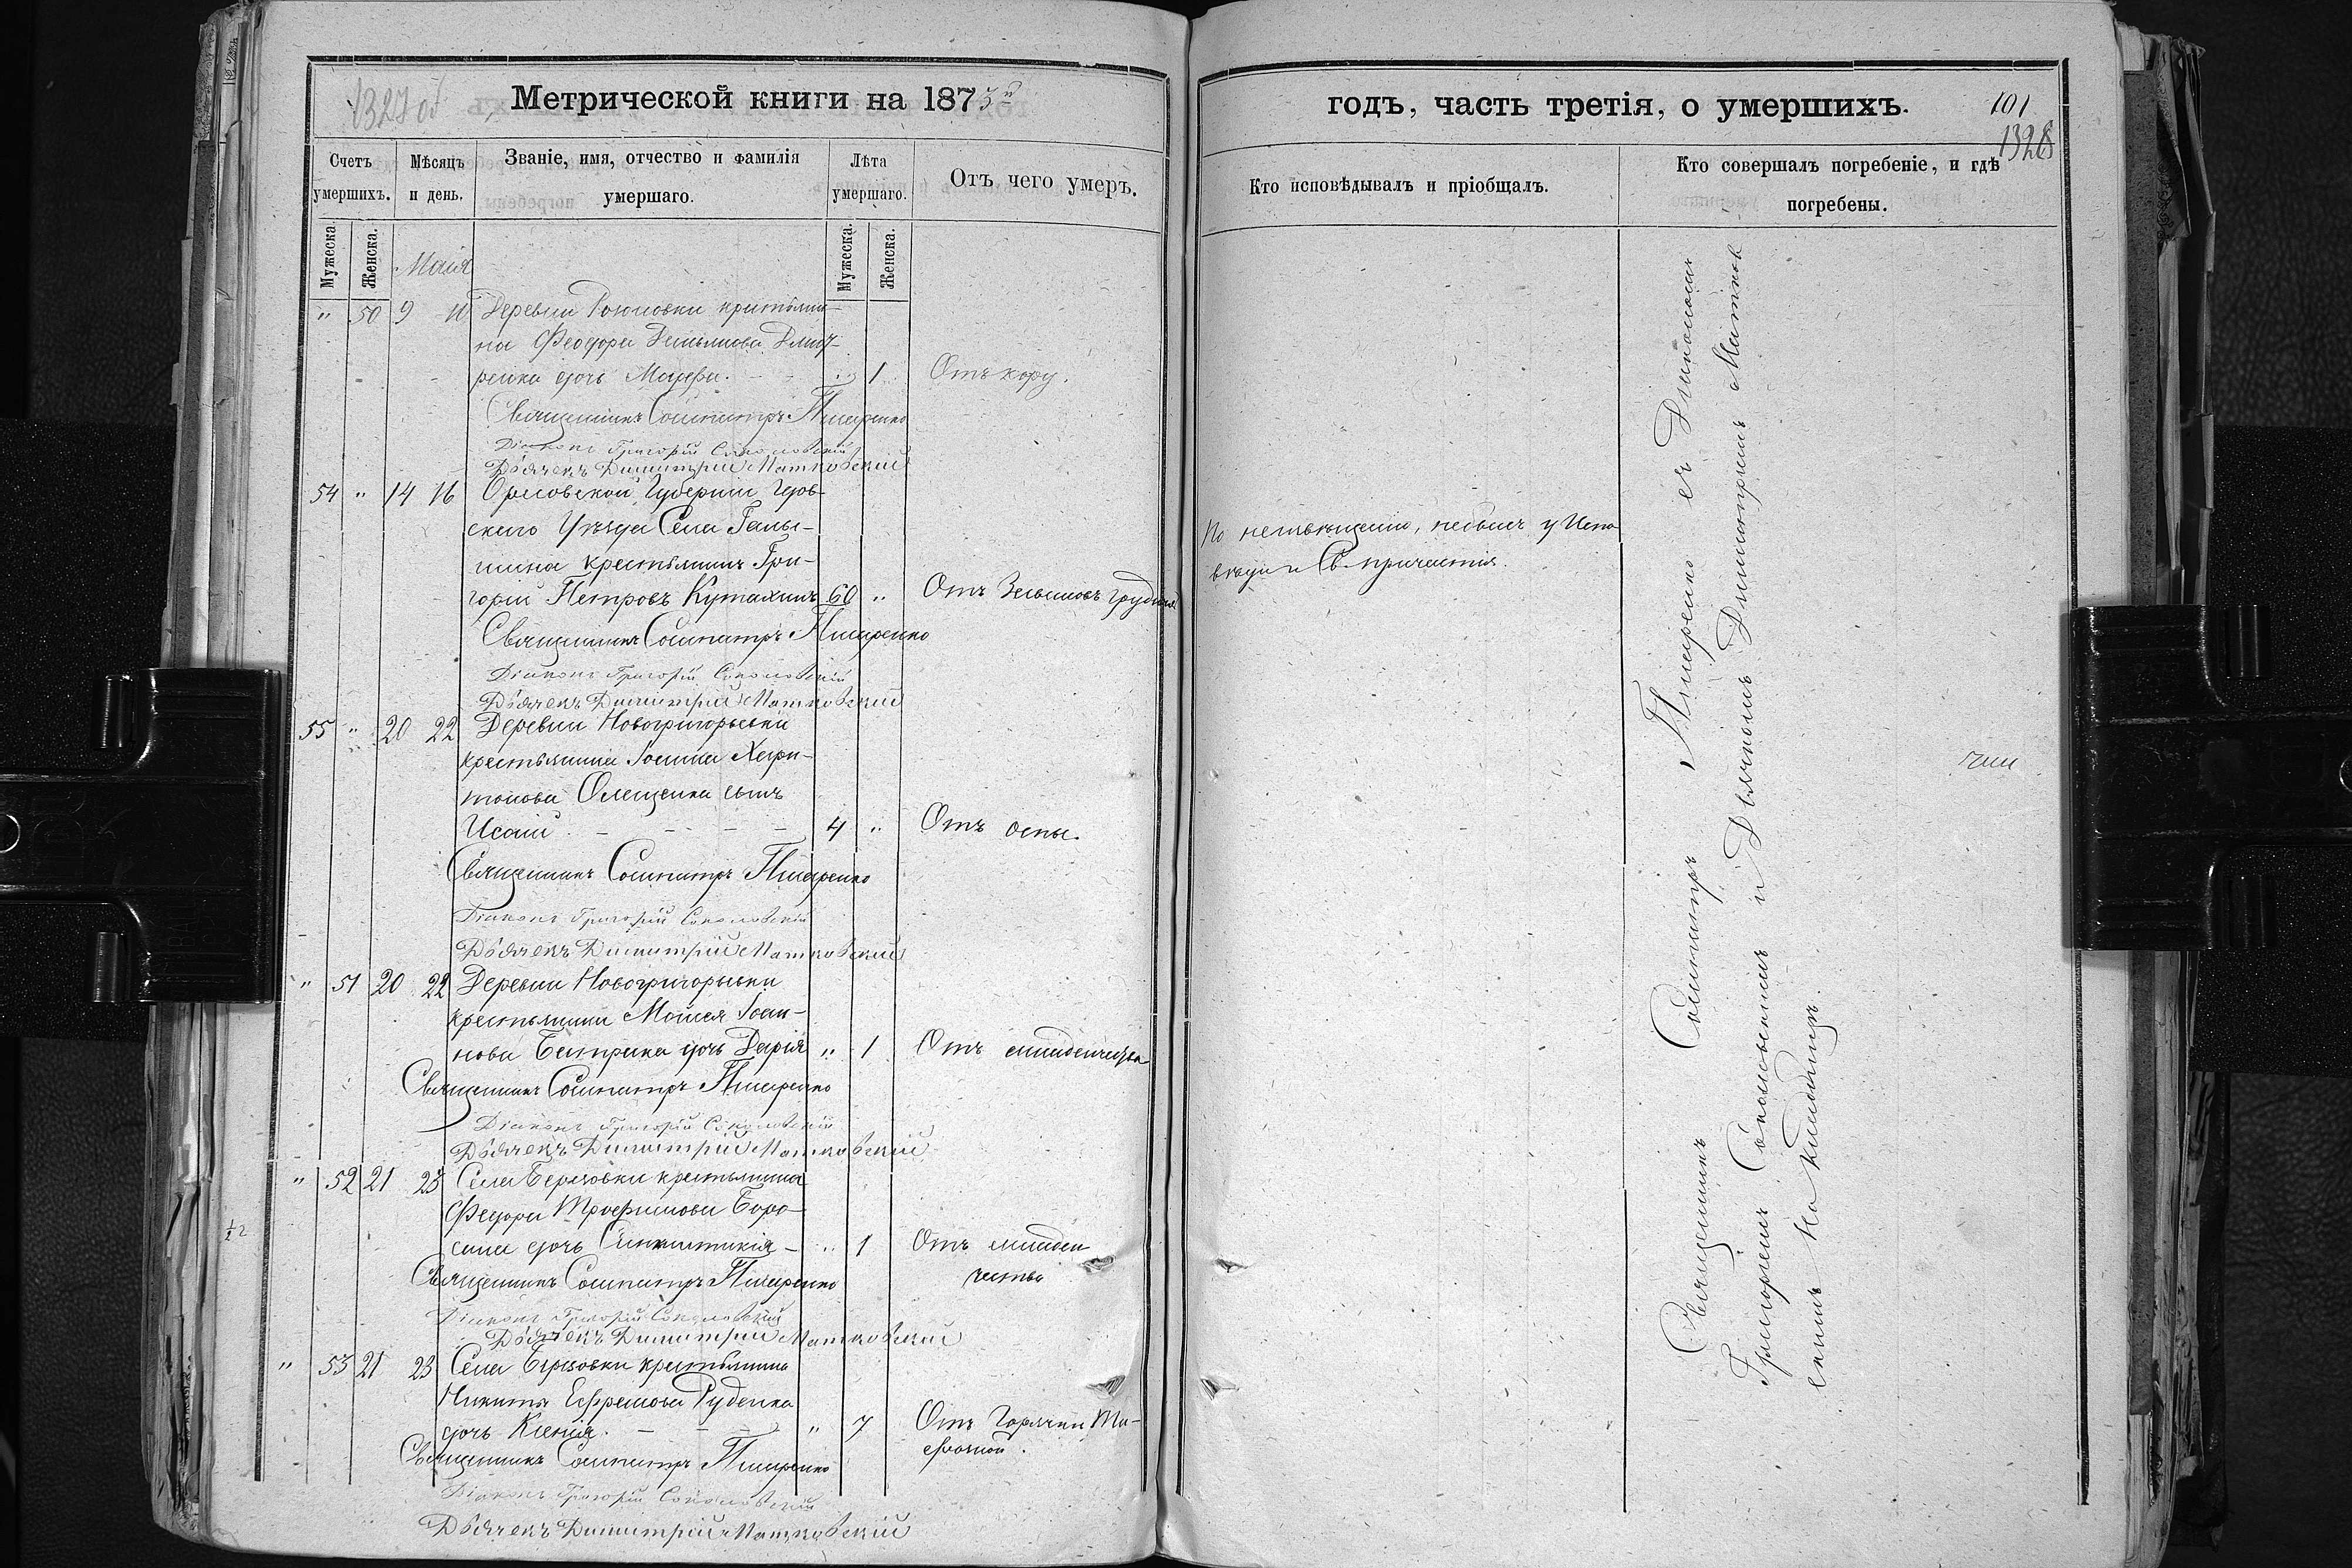 1327 об
Метрической книги на 1873й
Счетъ умершихъ.
Мѣсяцъ и день.
Званіе, имя, отчество и фамилія умершаго.
Лѣта умершаго.
Отъ чего умеръ.
Мужеска.
Женска.
Мужеска.
Женска.
Маія
" 50 9 11 Деревни крестьяни-
на Феодора Демьянова
ренка дочь Марфа. - - " 1 Отъ кору.
Священникъ Сосипатръ Писаренко
Діаконъ Григорій Соколовскій
Дьячекъ Димитрій Матковскій
54 " 14 16 Орловской Губерніи
скаго Уѣзда Села
шина крестьянинъ Гри-
горій Петровъ Кутахинъ 60 " Отъ грудной
Священникъ Сосипатръ Писаренко
Діаконъ Григорій Соколовскій
Дьячекъ Димитрій Матковскій
55 " 20 22 Деревни Новогригорьевки
крестьянина Іоанна Хари-
тонова Олещенка сынъ
Исаій - - - - 4 " Отъ оспы.
Священникъ Сосипатръ Писаренко
Діаконъ Григорій Соколовскій
Дьячекъ Димитрій Матковскій
" 51 20 22 Деревни Новогригорьевки
крестьянина Моисея Іоан-
нова дочь Дарія " 1 Отъ младенчества
Священникъ Сосипатръ Писаренко
Діаконъ Григорій Соколовскій
Дьячекъ Димитрій Матковскій
" 52 21 23 Села Березовки крестьянина
Феодора Трофимова Боро-
дочь Синклитикія - " 1 Отъ младен
чества
Священникъ Сосипатръ Писаренко
Діаконъ Григорій Соколовскій
Дьячекъ Димитрій Матковскій
" 53 21 23 Села Березовки крестьянина
Никиты Ефремова Руденка
дочь Ксенія. - - - " 7 Отъ Горячки Ти-
фозной.
Священникъ Сосипатръ Писаренко
Діаконъ Григорій Соколовскій
Дьячекъ Димитрій Матковскій
годъ, часть третія, о умершихъ.
101
1328
Кто исповѣдывалъ и пріобщалъ.
Кто совершалъ погребеніе, и гдѣ погребены.
По неизвѣщенію, небылъ у Испо
вѣди и Св. причастія.
Священникъ Сосипатръ Писаренко съ Діакономъ
Григоріемъ Соколовскимъ и Дьячкомъ Димитріемъ Матков
скимъ На кладбищѣ.